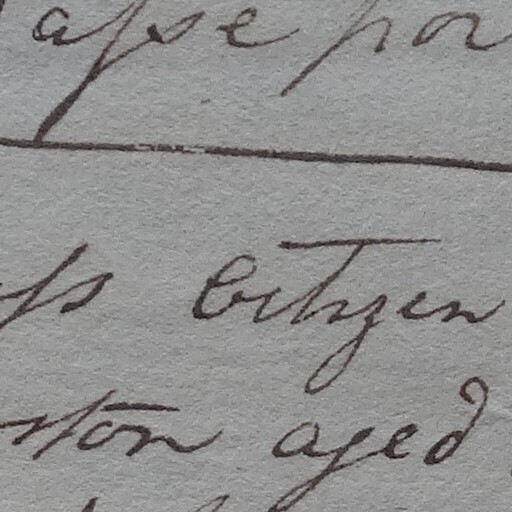 asse por
ss Citizen
ston aged